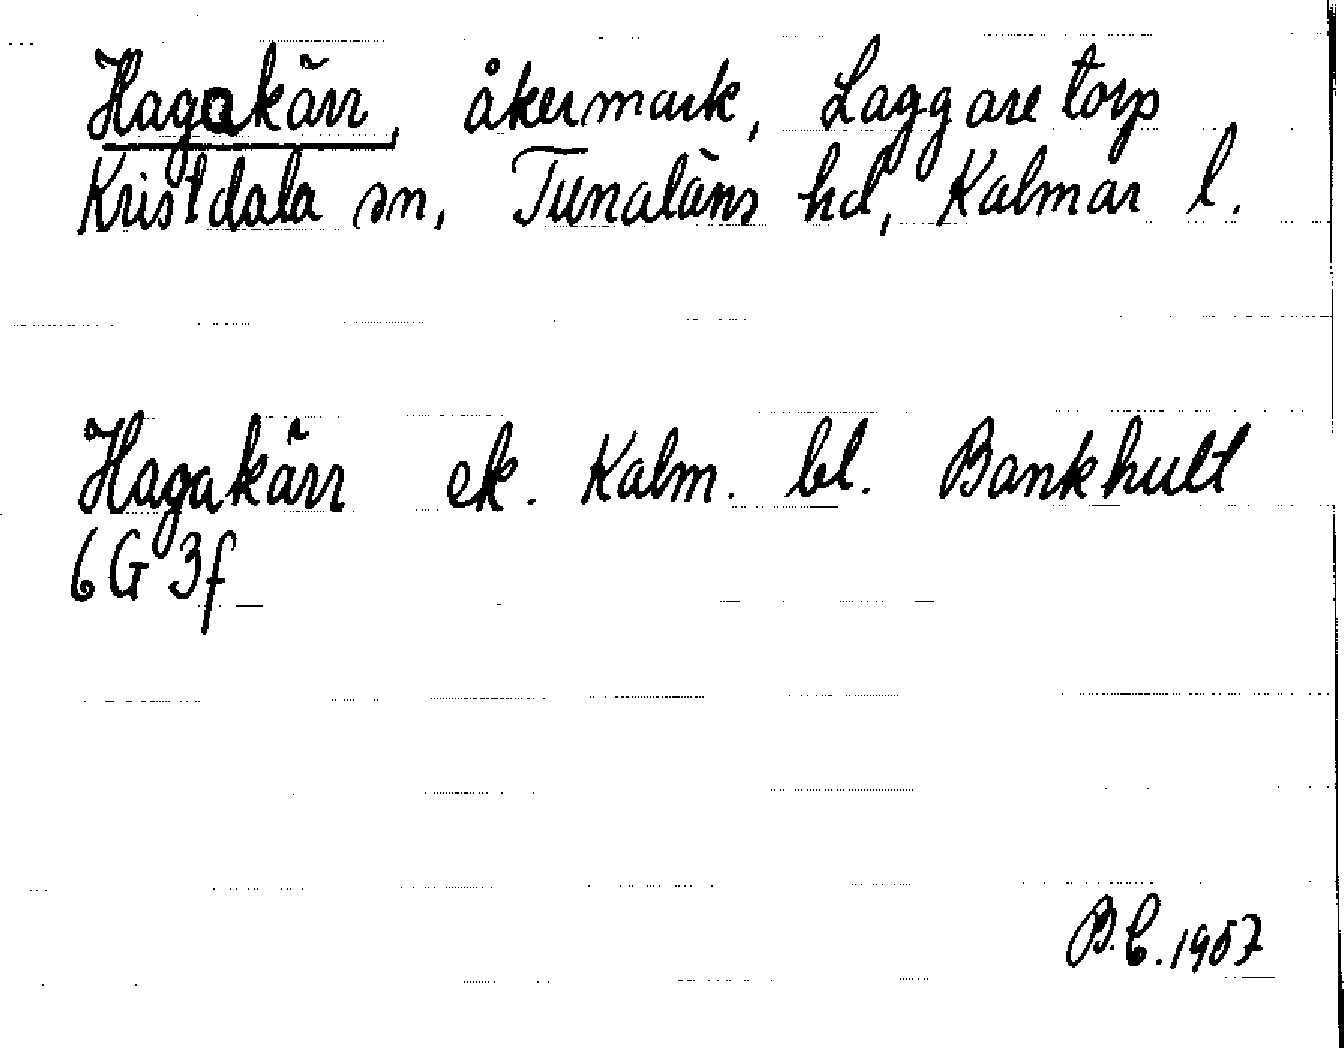 Hagakärr, åkermark, Laggaretorp
Kristdala sn, Tunaläns hd, Kalmar l.
Hagakärr ek. Kalm. bl. Bankhult
6G 3f
B.C. 1957